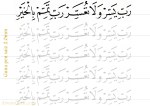 رَبِّ يَسِّرْ وَلَا تُعَسِّرْ رَبِّ تَمِّمْ بِالْخَيْرِ
رَبِّ يَسِّرْ وَلَا تُعَسِّرْ رَبِّ تَمِّمْ بِالْخَيْرِ
رَبِّ يَسِّرْ وَلَا تُعَسِّرْ رَبِّ تَمِّمْ بِالْخَيْرِ
رَبِّ يَسِّرْ وَلَا تُعَسِّرْ رَبِّ تَمِّمْ بِالْخَيْرِ
رَبِّ يَسِّرْ وَلَا تُعَسِّرْ رَبِّ تَمِّمْ بِالْخَيْرِ